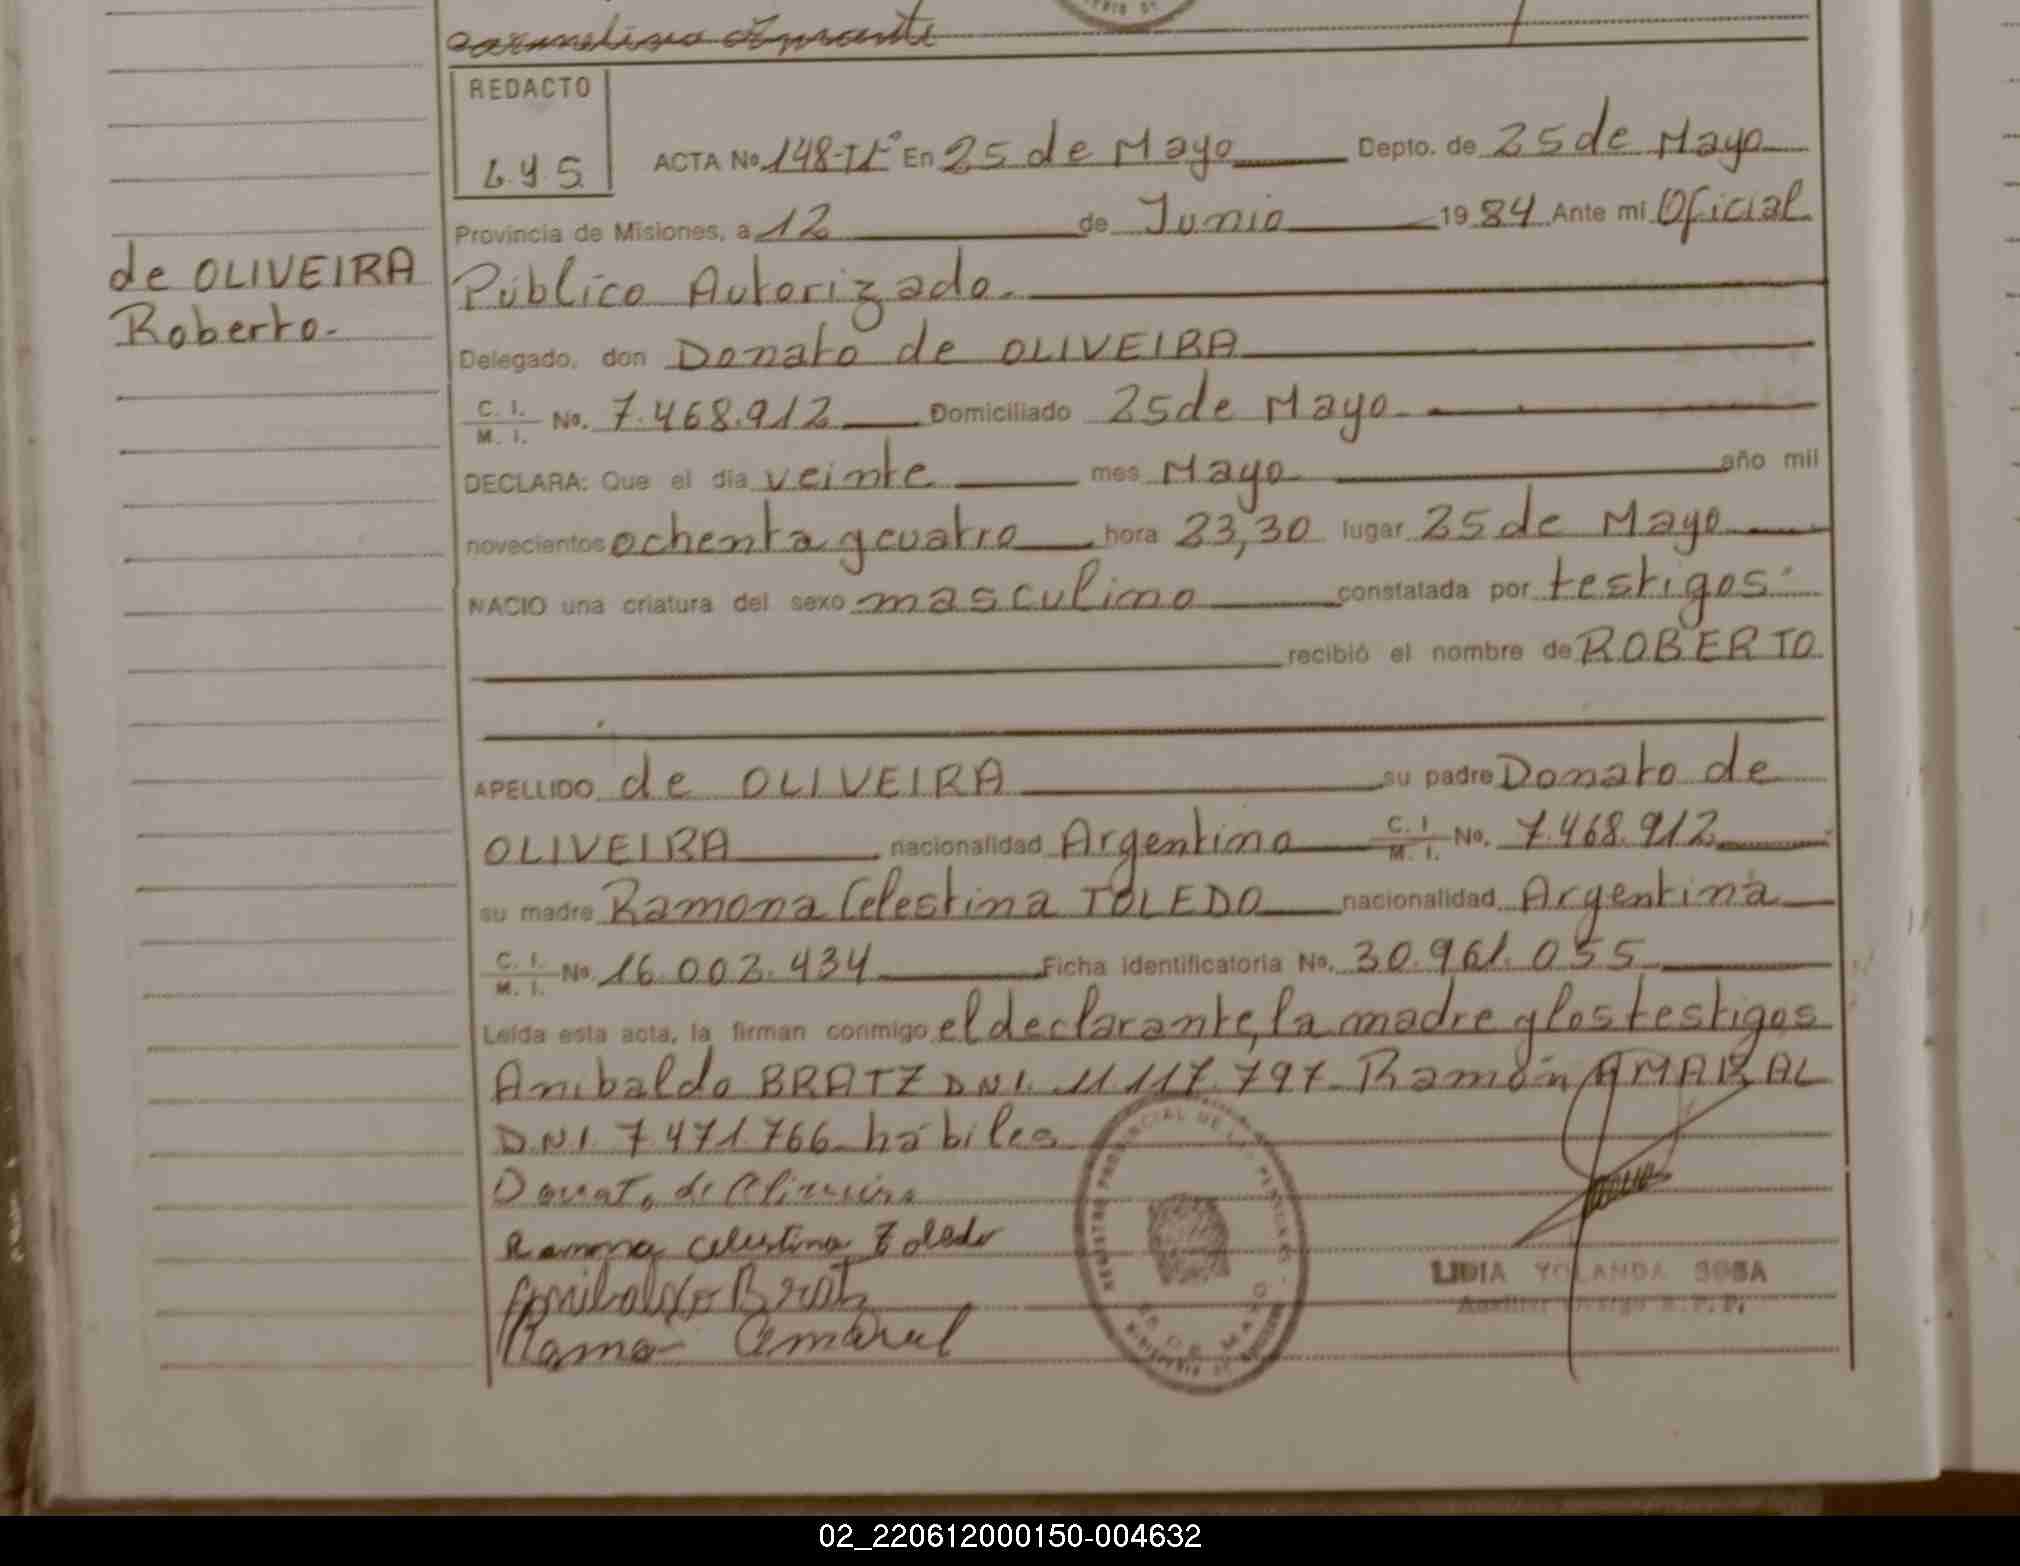 REDACTO
L.Y.S.
ACTA No. 148-Iº En 25 de Mayo Depto. de 25 de Mayo
Provincia de Misiones, a 12 de Junio 1984 Ante mi Oficial
de OLIVEIRA
Roberto.-
Público Autorizado.
Delegado, don Donato de OLIVEIRA
C. I. / M. I. No. 7.468.912 Domiciliado 25 de Mayo
DECLARA: Que el dia veinte mes Mayo año mil
novecientos ochenta y cuatro hora 23,30 lugar 25 de Mayo
NACIO una criatura del sexo masculino constatada por testigos
recibió el nombre de ROBERTO
APELLIDO de OLIVEIRA su padre Donato de
OLIVEIRA nacionalidad Argentino C. I. / M. I. No. 7.468.912
su madre Ramona Celestina TOLEDO nacionalidad Argentina
C. I. / M. I. No. 16.002.434 Ficha identificatoria No. 30.961.055
Leída esta acta, la firman conmigo el declarante, la madre y los testigos
Anibaldo BRATZ D.N.I. 11.117.797 Ramón AMARAL
D.N.I. 7.471.766 hábiles
Donato de Oliveira
Ramona Celestina Toledo
Annibaldo Bratz
Ramon Amaral
REGISTRO PROVINCIAL DE LAS PERSONAS
25 DE MAYO
LIDIA YOLANDA SOSA
02_220612000150-004632